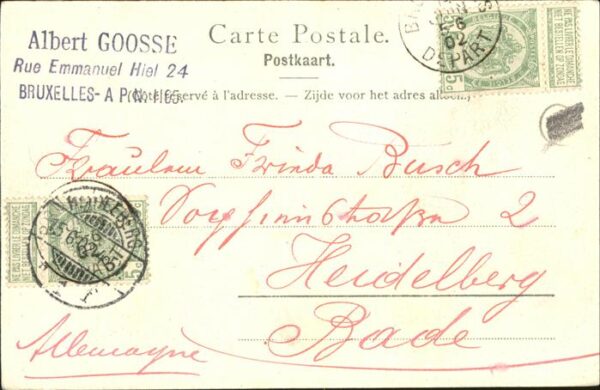 Albert GOOSSE
Rue Emmanuel Hiel 24
BRUXELLES-A P.W. 1165.
Carte Postale.
Postkaart.
(Côté réservé à l'adresse. — Zijde voor het adres alleen.)
DEPART
5-6
02
5c
NE PAS LIVRER LE DIMANCHE
NIET BESTELLEN OP ZONDAG
Fräulein Frieda Busch
2
Heidelberg
Bade
Allemagne
5c
NE PAS LIVRER LE DIMANCHE
NIET BESTELLEN OP ZONDAG